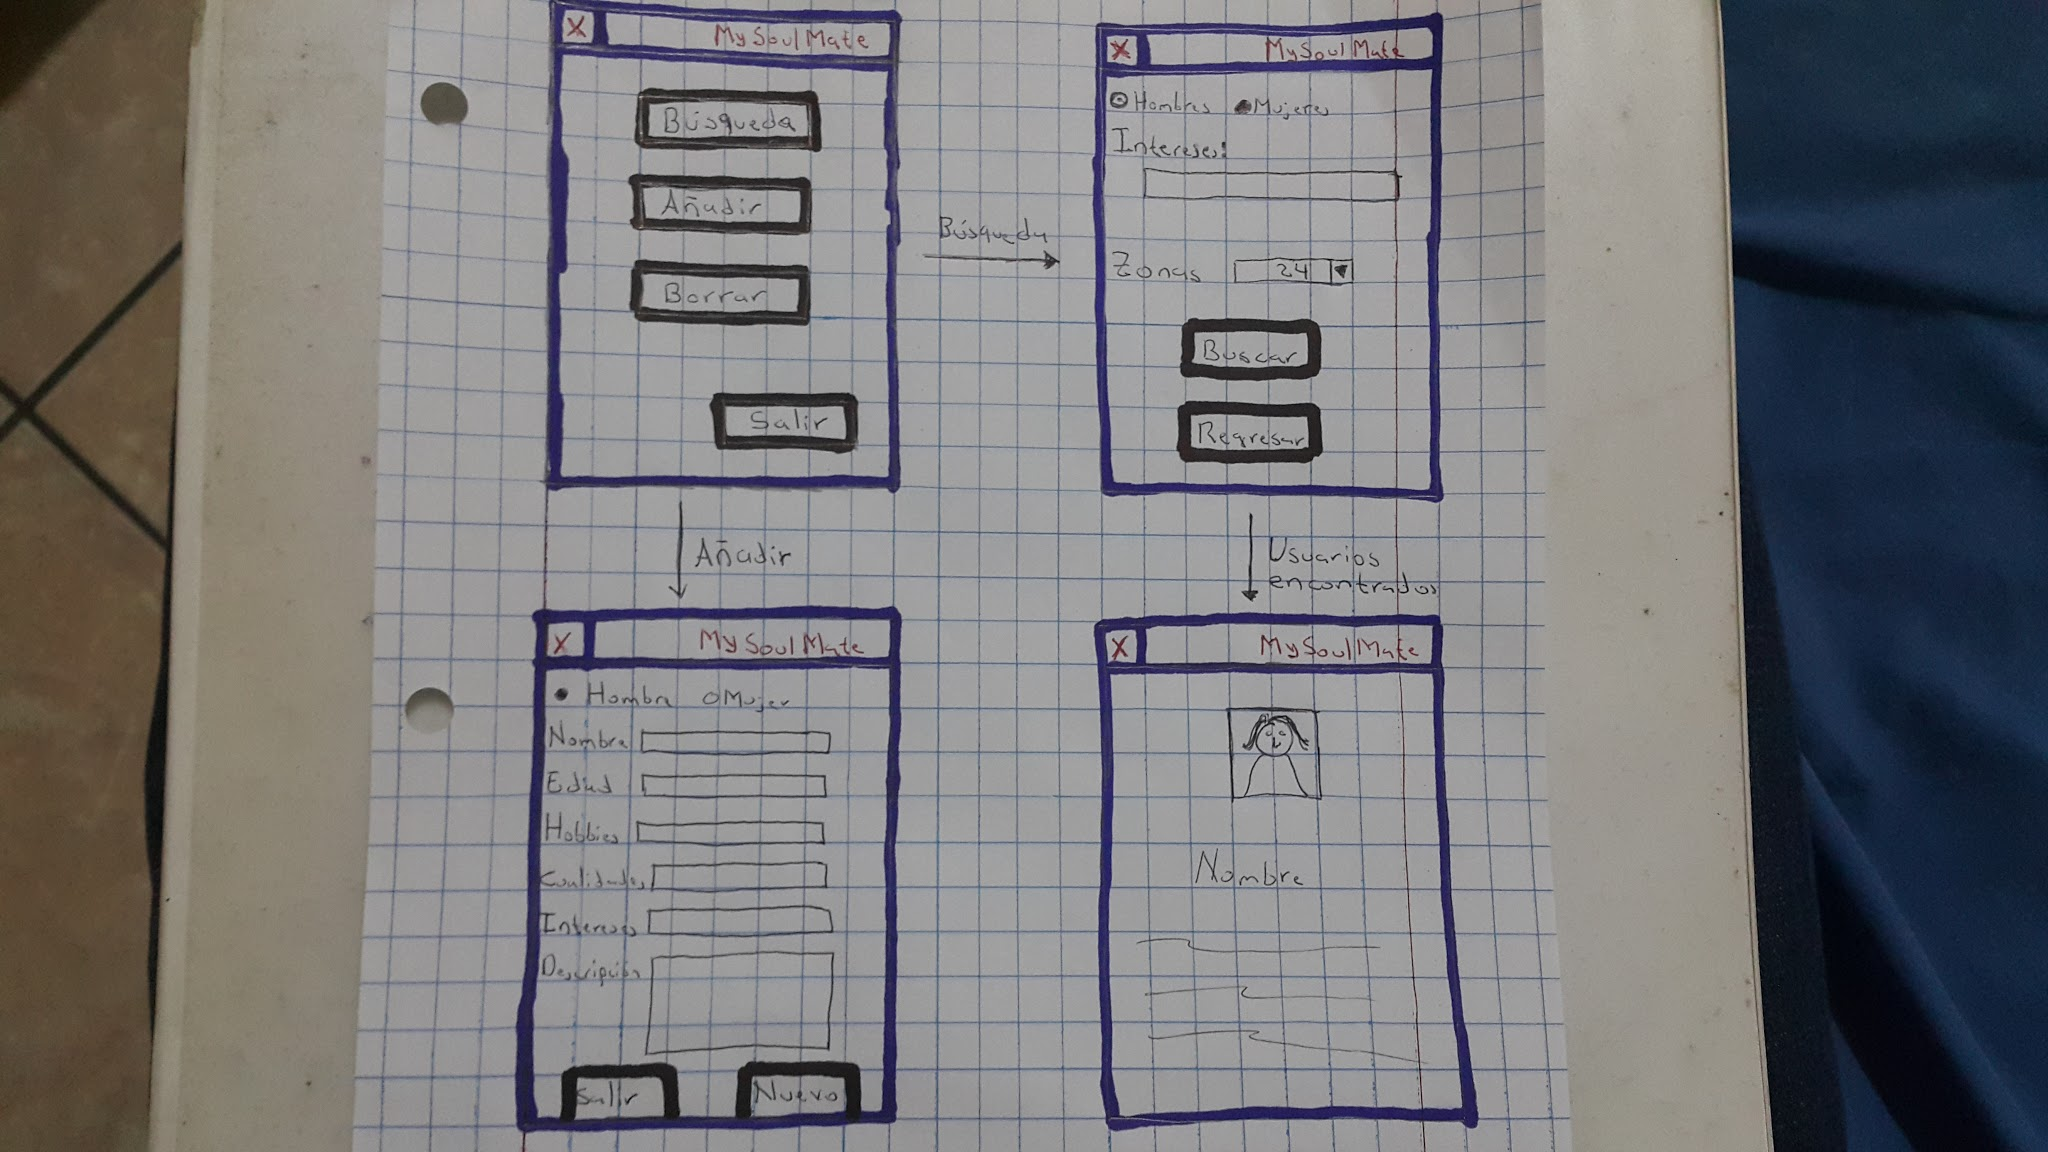 X MySoulMate
Búsqueda
Añadir
Borrar
Salir
Búsqueda
X MySoulMate
Hombres Mujeres
Intereses:
Zonas 24
Buscar
Regresar
Añadir
Usuarios
encontrados
X MySoulMate
Hombre Mujer
Nombre
Edad
Hobbies
Cualidades
Intereses
Descripción
Salir Nuevo
X MySoulMate
Nombre